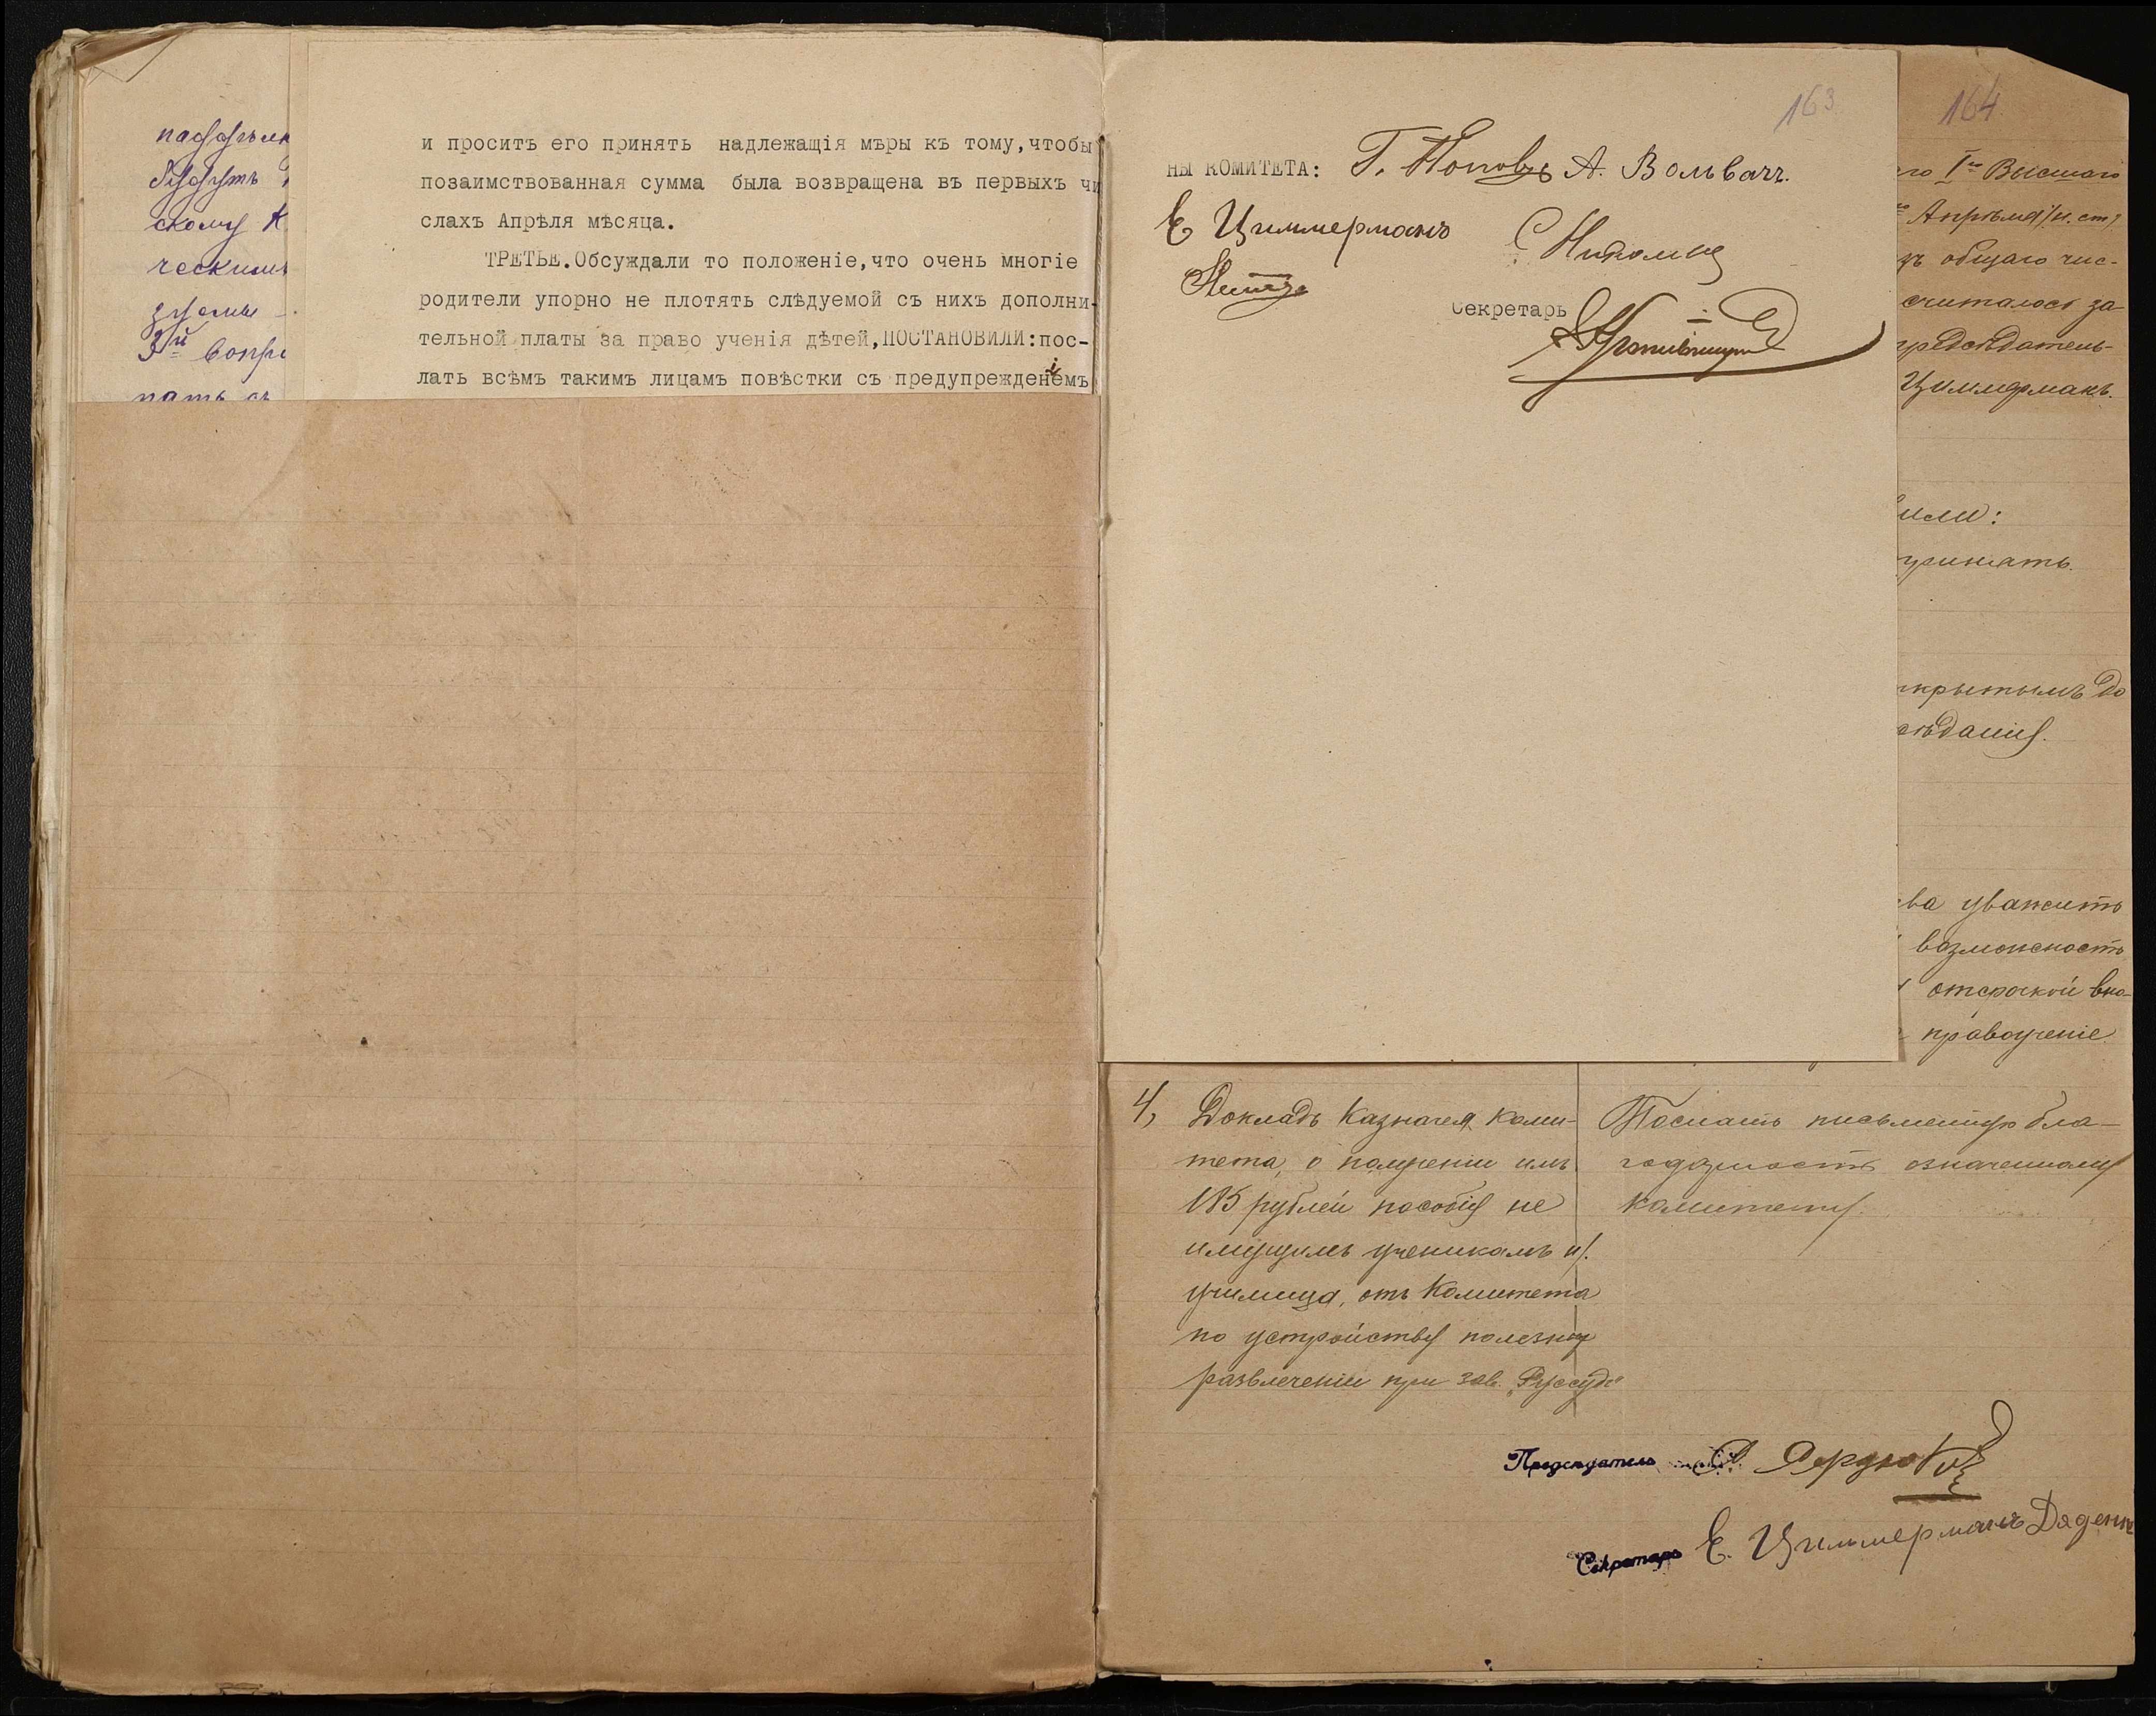 скому К
ческимъ
3й вопр
и проситъ его принять надлежащія мѣры къ тому,чтобы
позаимствованная сумма была возвращена въ первыхъ чи
слахъ Апрѣля мѣсяца.
ТРЕТЬЕ.Обсуждали то положеніе,что очень многіе
родители упорно не плотятъ слѣдуемой съ нихъ дополни-
тельной платы за право ученія дѣтей,ПОСТАНОВИЛИ:пос-
лать всѣмъ такимъ лицамъ повѣстки съ предупрежденіемъ
163
НЫ КОМИТЕТА: Г. Поповъ А. Вольвачъ.
Е Циммерманъ
Секретарь
164
го Iго Высшаго
Апрѣля/н. ст/
ъ общаго чис-
считалось за-
предсѣдатель-
Циммерманъ.
или:
принять.
крытымъ до
сѣданія.
ва уважить
возможность
отсрочкой вно-
правоученіе
4, Докладъ Казначея коми-
тета, о полученіи имъ
185 рублей пособія не
имущимъ ученикамъ н/.
училища, отъ Комитета
по устройству полезных
развлеченій при зав. „Руссудъ"
Послать письменную бла-
годарность означенному
комитету.
Предсѣдатель
Секретарь Е. Циммерманъ Дяденк